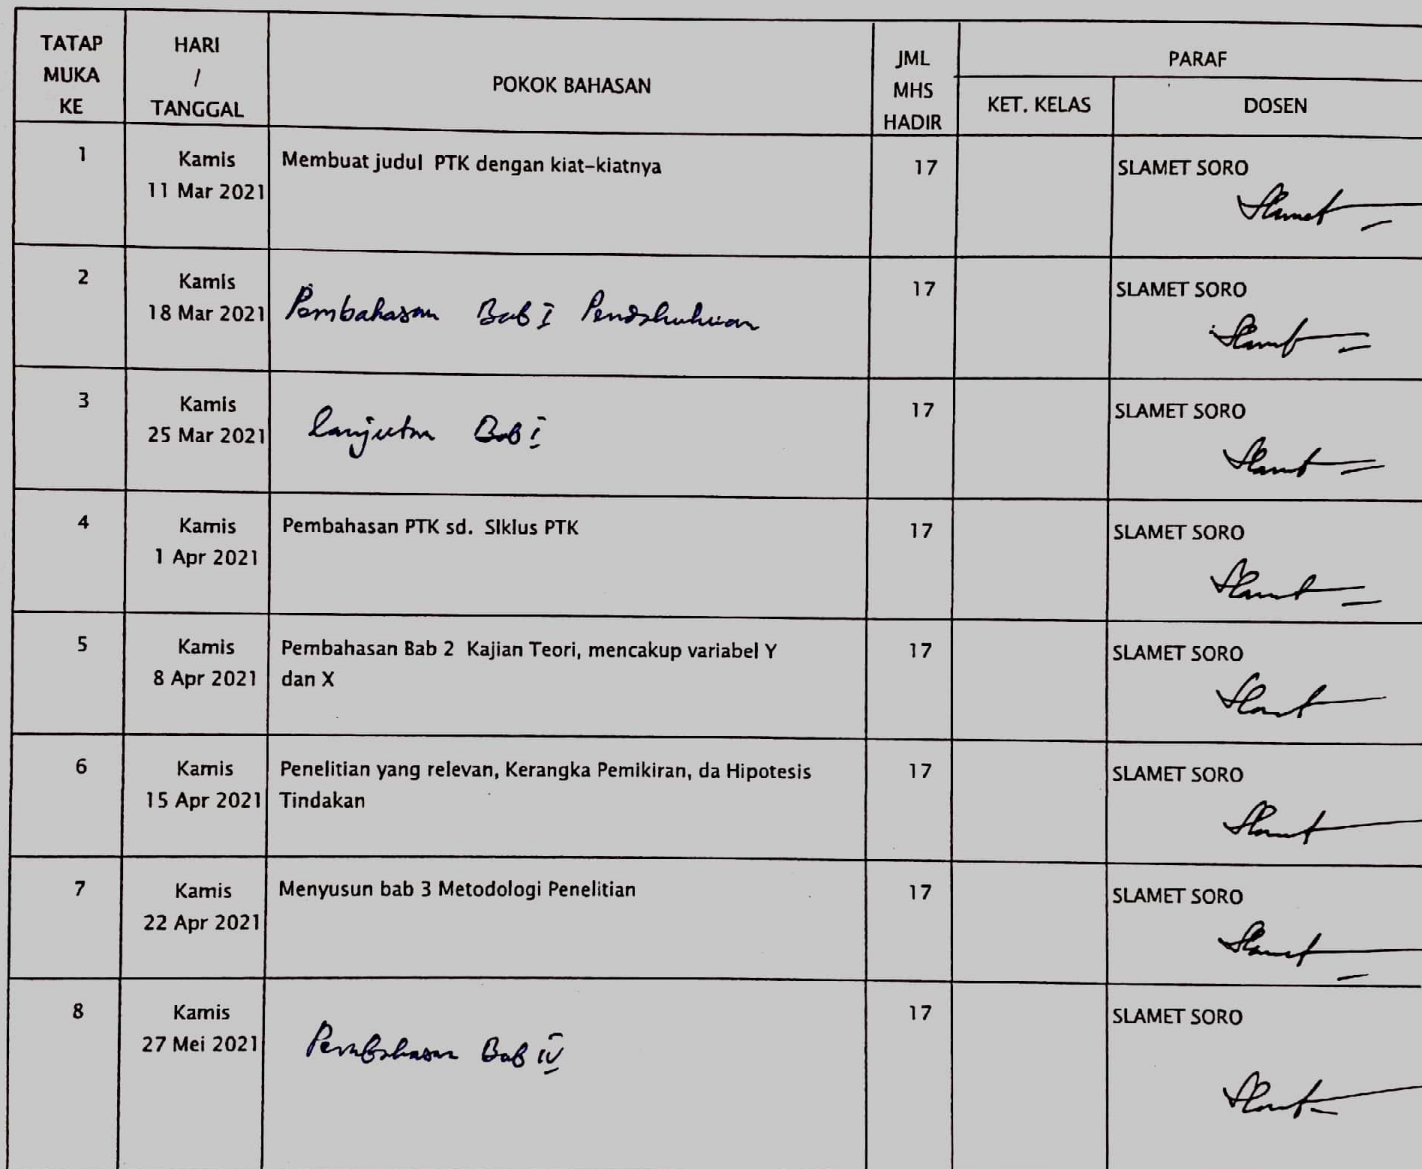 TATAP MUKA KE
HARI / TANGGAL
POKOK BAHASAN
JML MHS HADIR
PARAF
KET. KELAS
DOSEN
1
Kamis
11 Mar 2021
Membuat judul PTK dengan kiat-kiatnya
17
SLAMET SORO
Slamet
2
Kamis
18 Mar 2021
Pembahasan Bab I Pendahuluan
17
SLAMET SORO
Slamet
3
Kamis
25 Mar 2021
Lanjutan Bab I
17
SLAMET SORO
Slamet
4
Kamis
1 Apr 2021
Pembahasan PTK sd. Siklus PTK
17
SLAMET SORO
Slamet
5
Kamis
8 Apr 2021
Pembahasan Bab 2 Kajian Teori, mencakup variabel Y
dan X
17
SLAMET SORO
Slamet
6
Kamis
15 Apr 2021
Penelitian yang relevan, Kerangka Pemikiran, da Hipotesis
Tindakan
17
SLAMET SORO
Slamet
7
Kamis
22 Apr 2021
Menyusun bab 3 Metodologi Penelitian
17
SLAMET SORO
Slamet
8
Kamis
27 Mei 2021
Pembahasan Bab IV
17
SLAMET SORO
Slamet